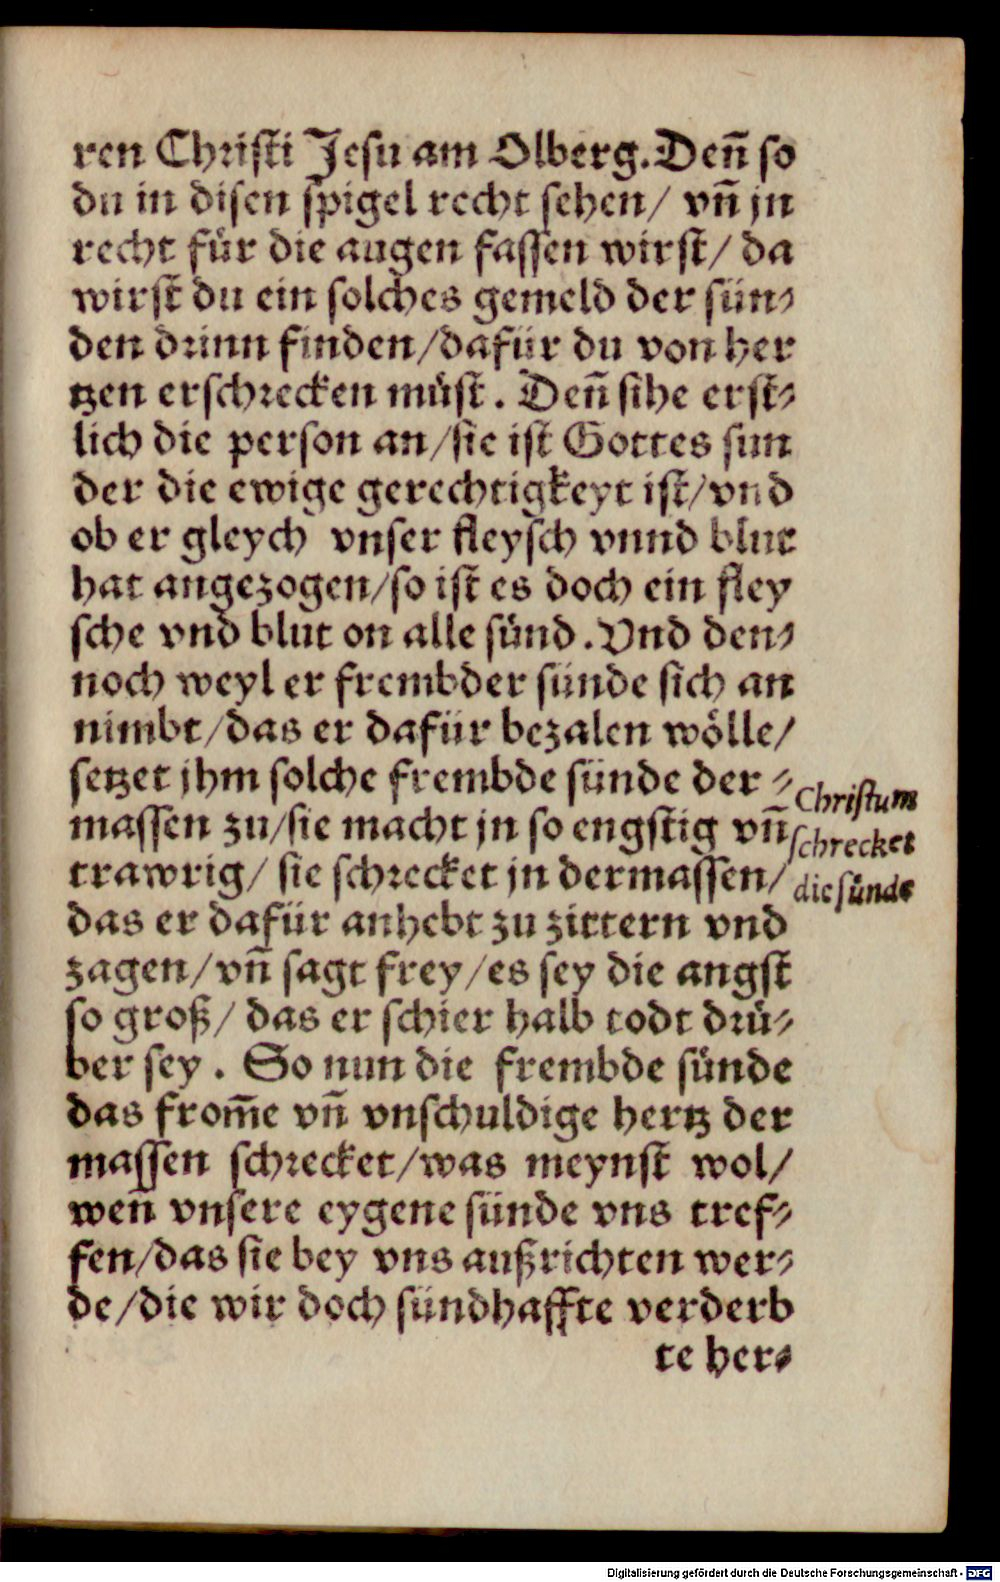 ren Christi Jesu am Olberg. Deñ so
du in disen spigel recht sehen/ vñ jn
recht für die augen fassen wirst/ da
wirst du ein solches gemeld der sün⸗
den drinn finden/dafür du von her
tzen erschrecken müst. Deñ sihe erst⸗
lich die person an/sie ist Gottes sun
der die ewige gerechtigkeyt ist/vnd
ob er gleych vnser fleysch vnnd blut
hat angezogen/so ist es doch ein fley
sche vnd blut on alle sünd. Vnd den⸗
noch weyl er frembder sünde sich an
nimbt/das er dafür bezalen wölle/
setzet jhm solche frembde sünde der⸗
massen zu/sie macht jn so engstig vñ
trawrig/ sie schrecket jn dermassen/
das er dafür anhebt zu zittern vnd
zagen/vñ sagt frey/es sey die angst
so groß/ das er schier halb todt drü⸗
ber sey. So nun die frembde sünde
das from̃e vñ vnschuldige hertz der
massen schrecket/was meynst wol/
weñ vnsere eygene sünde vns tref⸗
fen/das sie bey vns außrichten wer⸗
de/die wir doch sündhaffte verderb
te her⸗
Christum
schrecket
die sünde
Digitalisierung gefördert durch die Deutsche Forschungsgemeinschaft - DFG